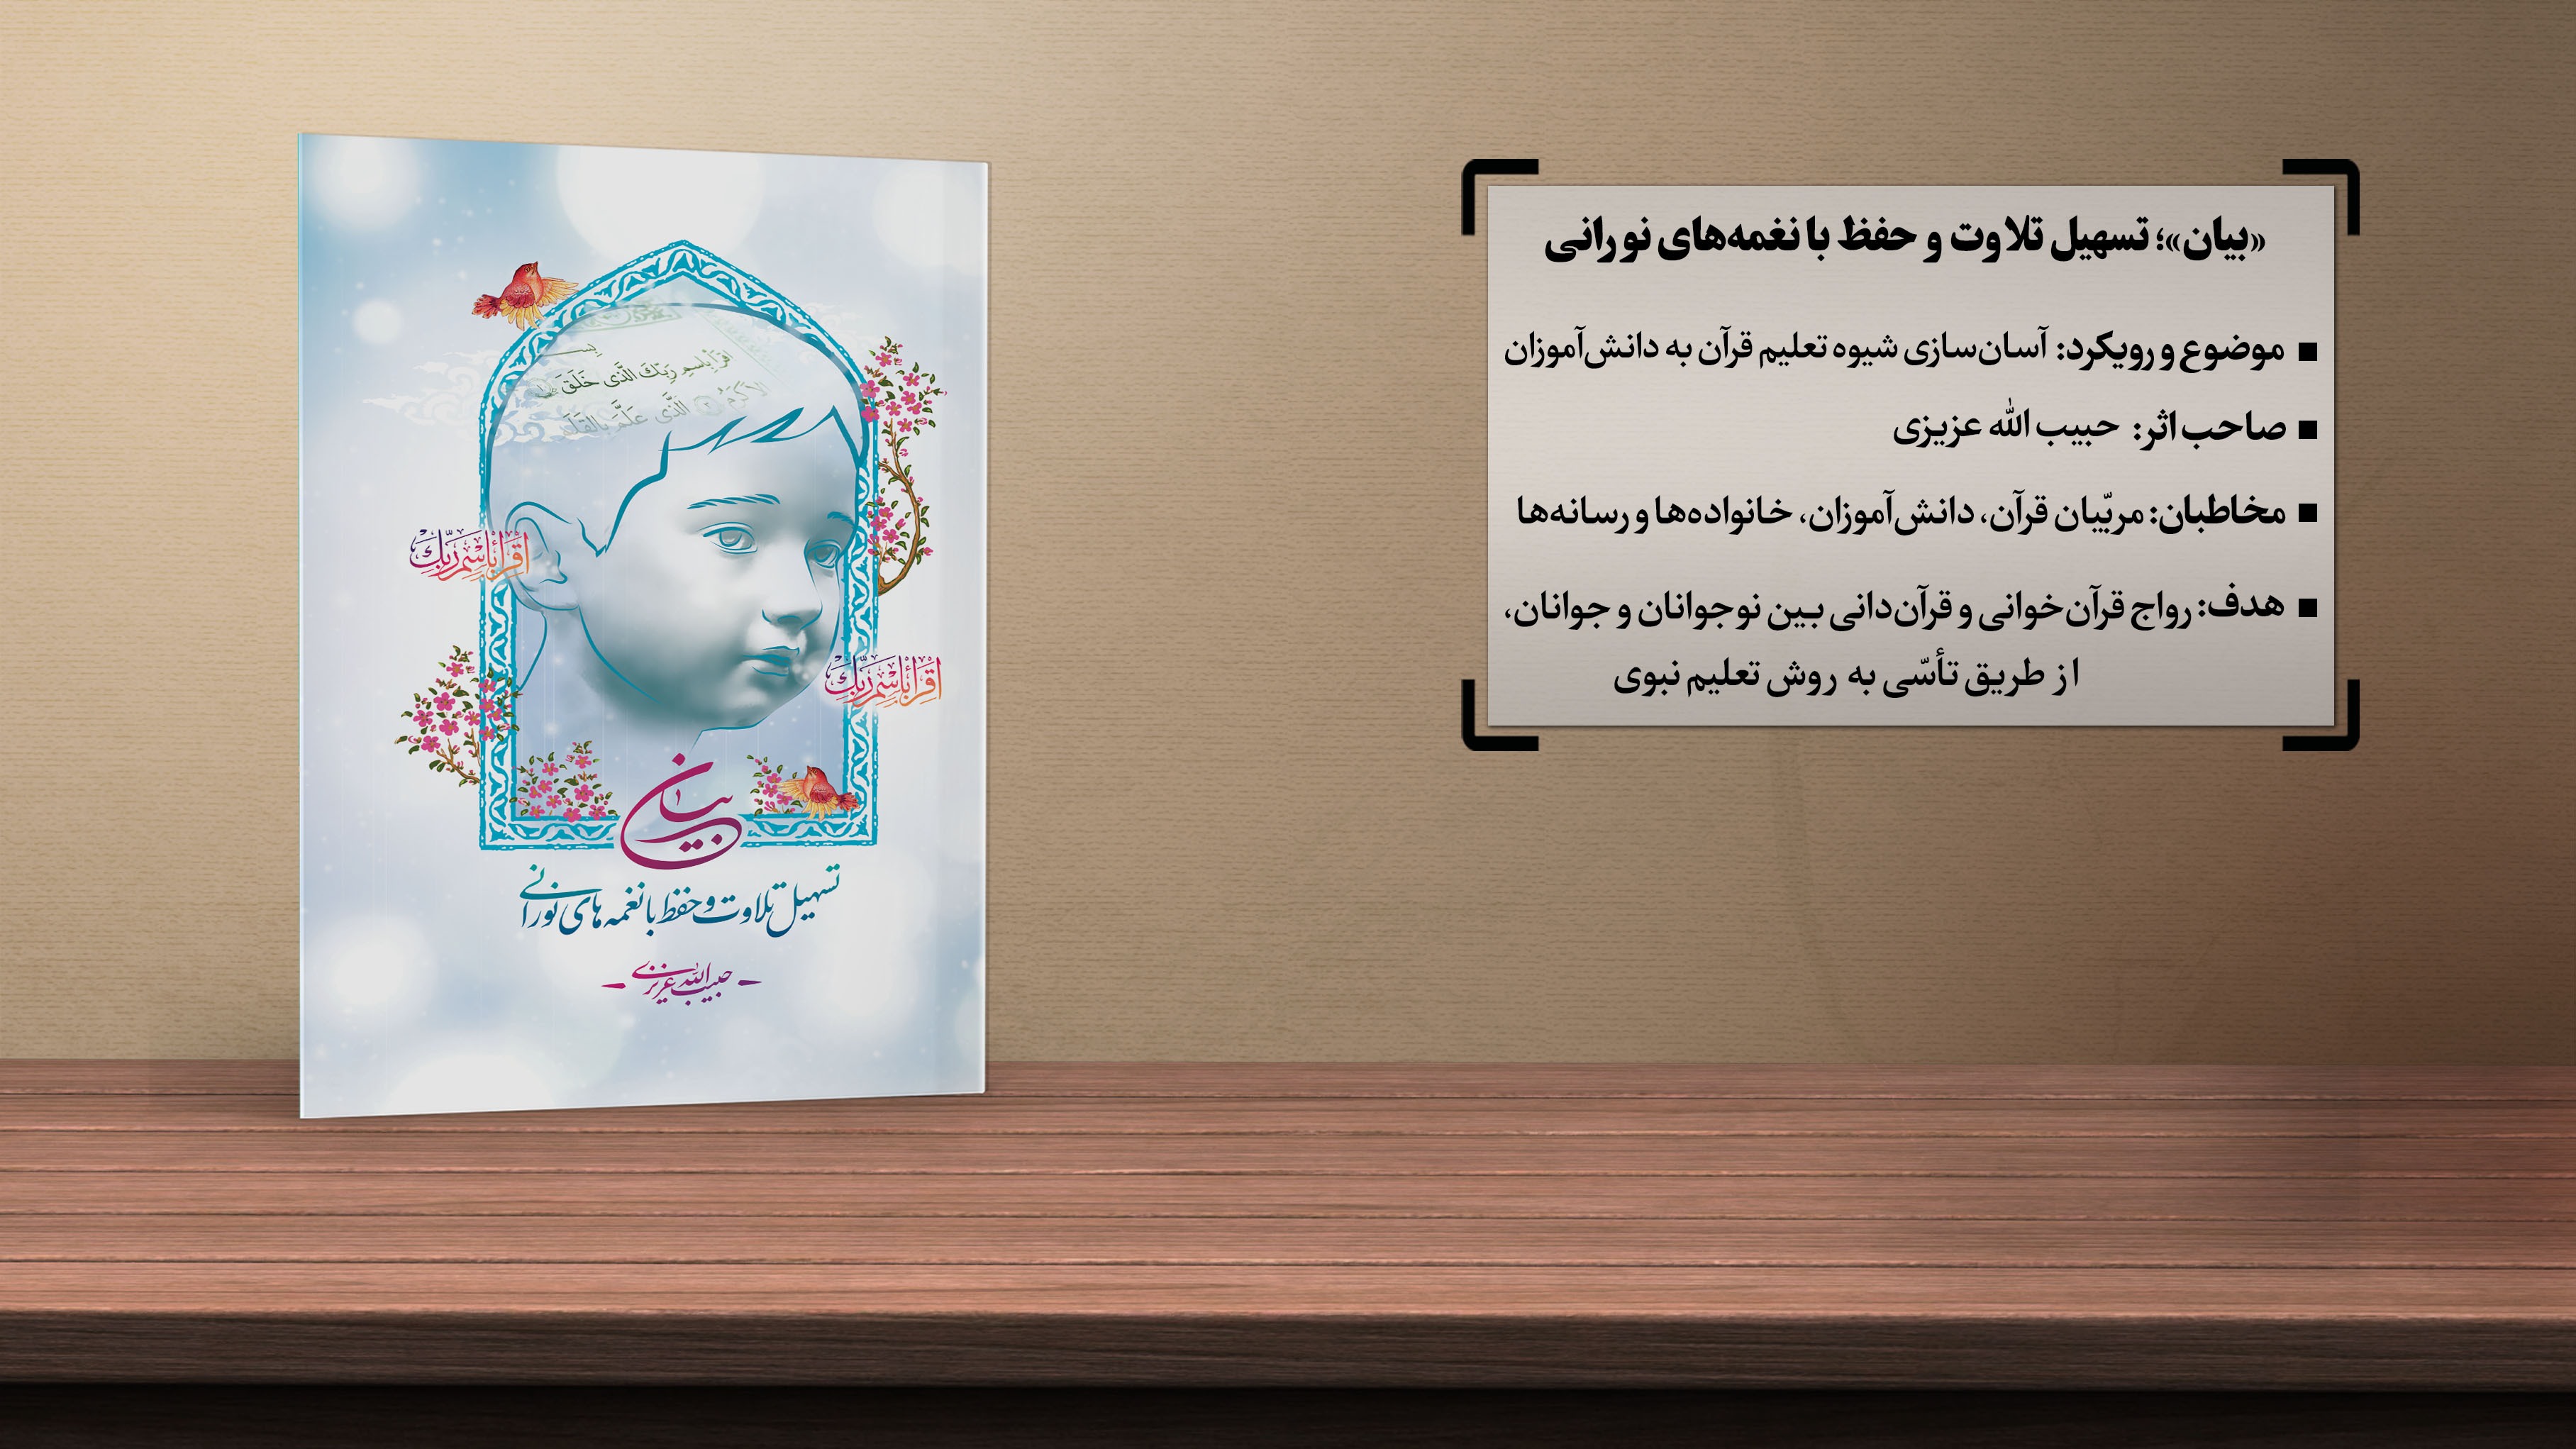 «بیان»؛ تسهیل تلاوت و حفظ با نغمه‌های نورانی
■ موضوع و رویکرد: آسان‌سازی شیوه تعلیم قرآن به دانش‌آموزان
■ صاحب اثر: حبیب الله عزیزی
■ مخاطبان: مربّیان قرآن، دانش‌آموزان، خانواده‌ها و رسانه‌ها
■ هدف: رواج قرآن‌خوانی و قرآن‌دانی بین نوجوانان و جوانان،
از طریق تأسّی به روش تعلیم نبوی
اقرأ باسم ربك الذی خلق
الاكرم الذی علّم بالقلم
اقرأ باسم ربّك
اقرأ باسم ربّك
بیان
تسهیل تلاوت و حفظ با نغمه های نورانی
حبیب الله عزیزی